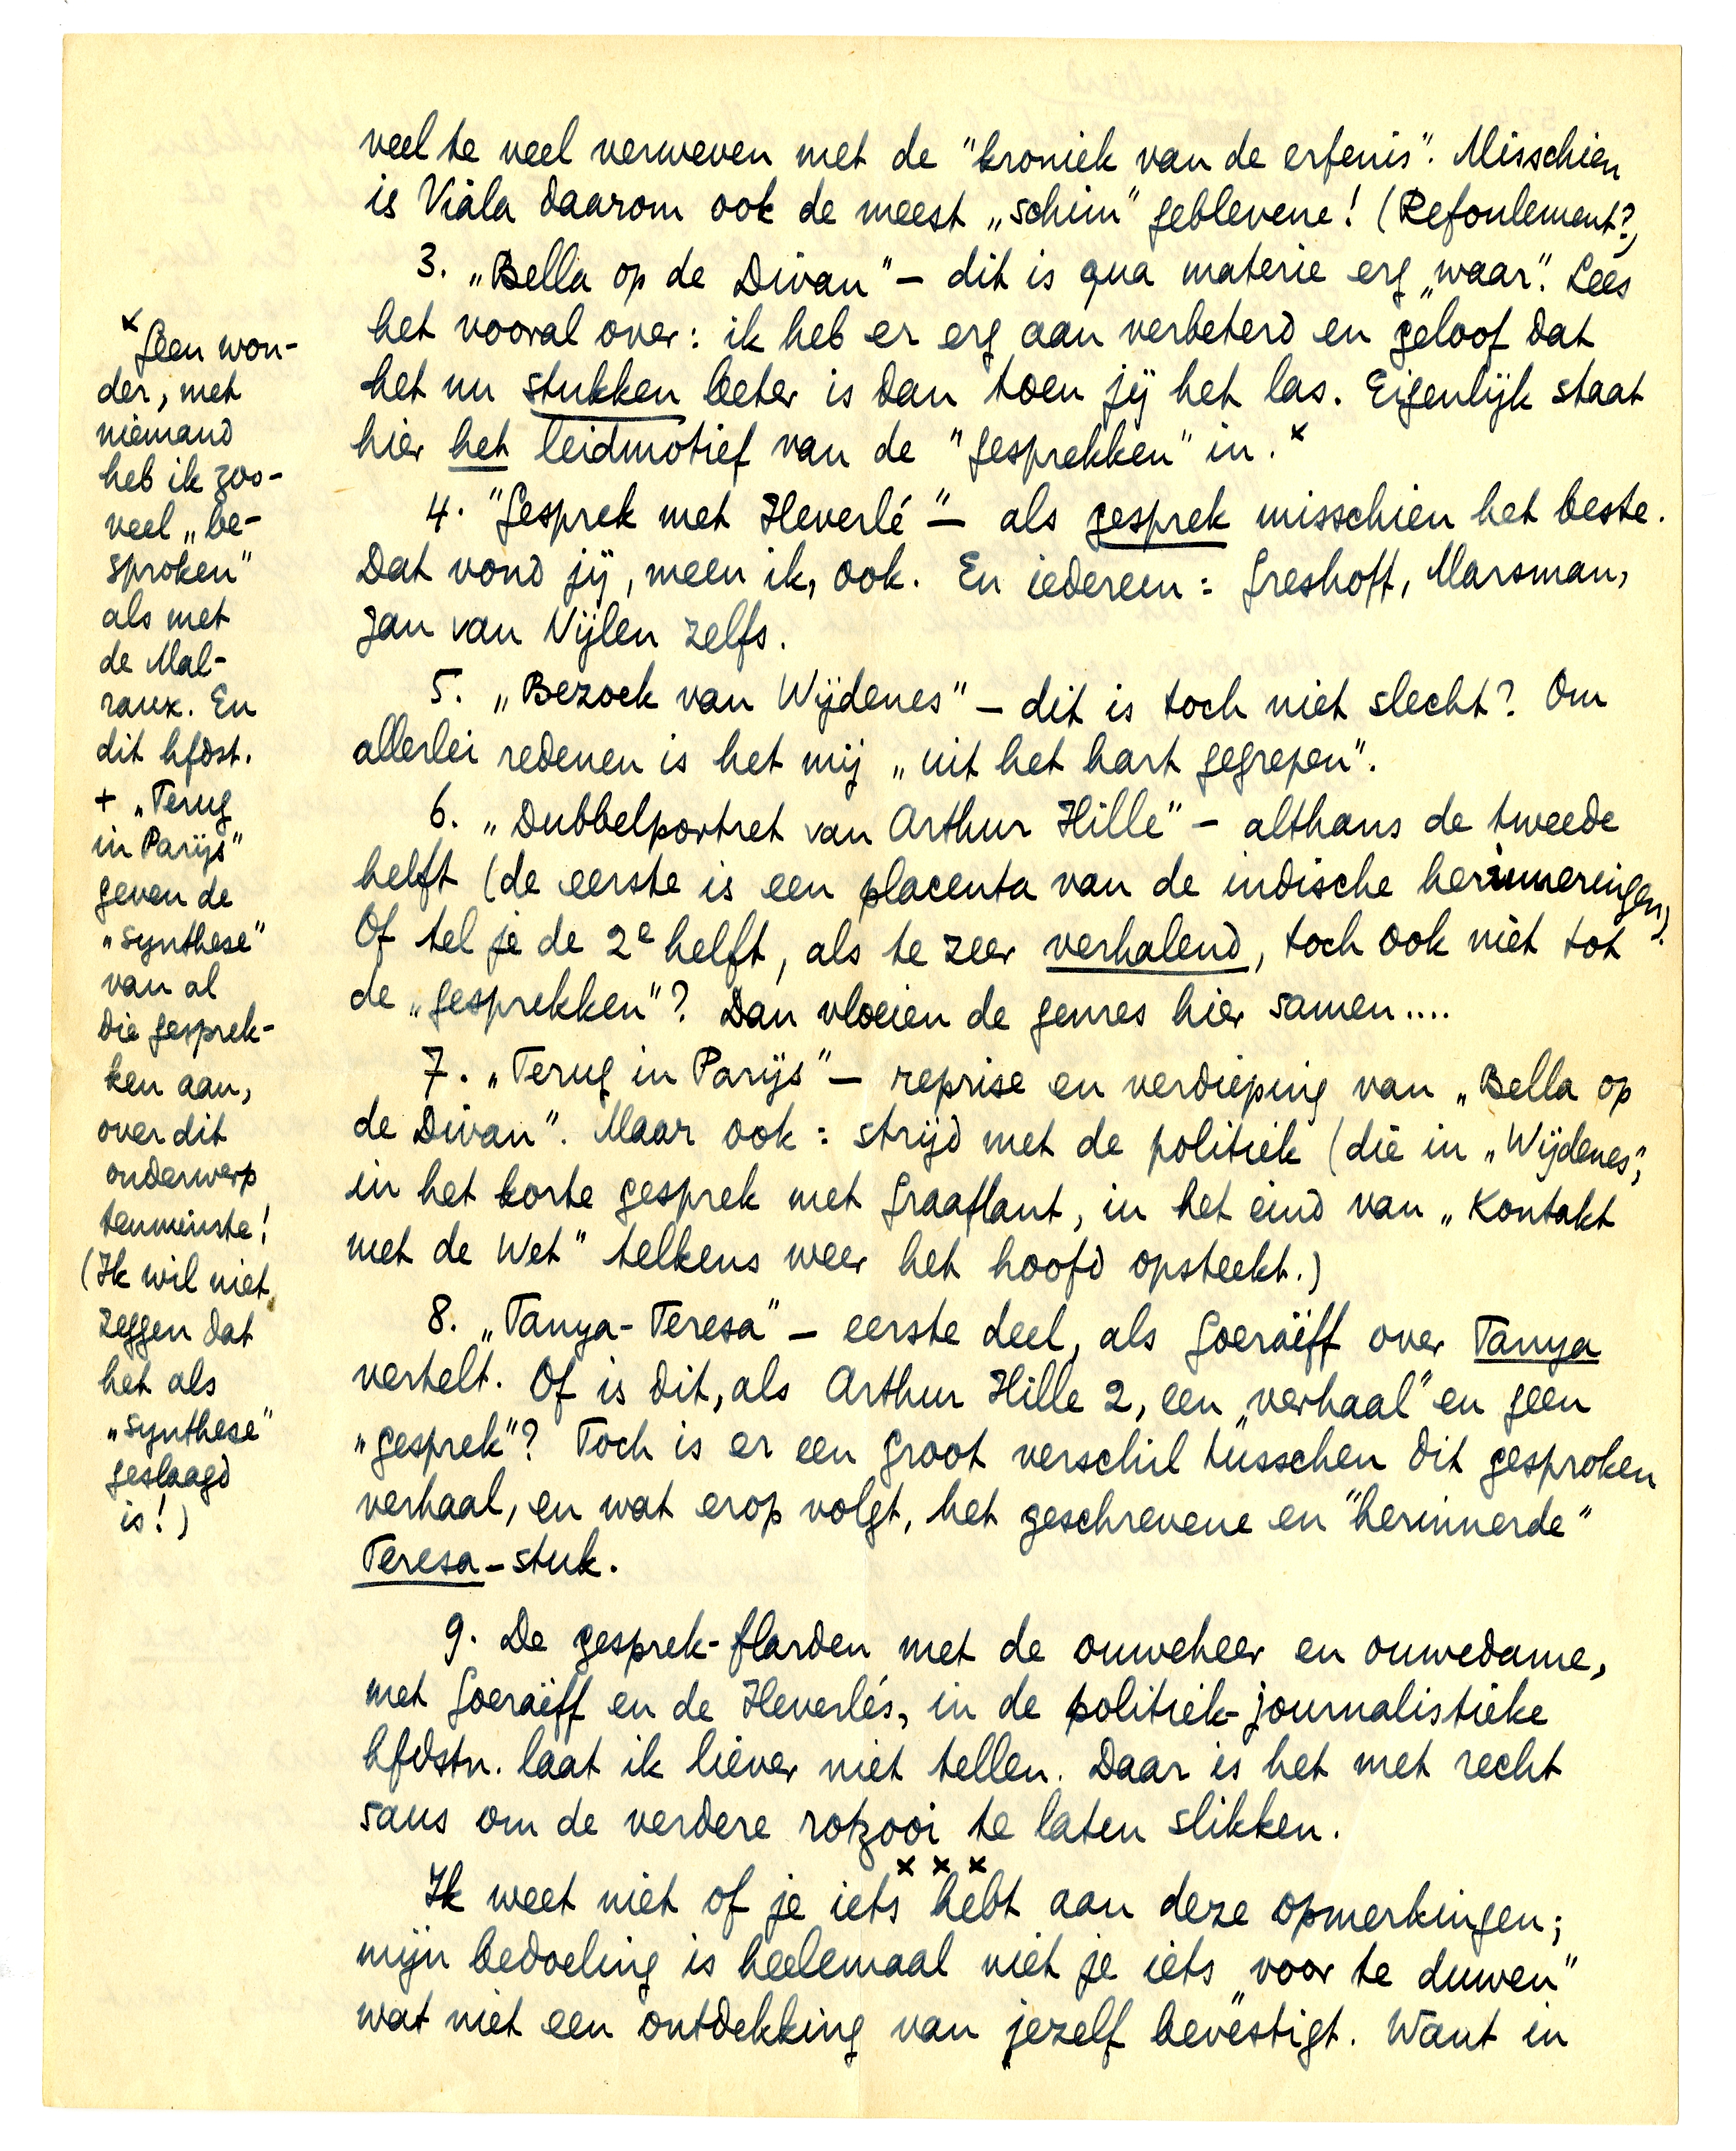 veel te veel verweven met de "kroniek van de erfenis". Misschien
is Viala daarom ook de meest „schim" geblevene! (Refoulement?)
3. „Bella op de Divan" – dit is qua materie erg „waar". Lees
het vooral over: ik heb er erg aan verbeterd en geloof dat
het nu stukken beter is dan toen jij het las. Eigenlijk staat
hier het leidmotief van de "gesprekken" in. x
4. "Gesprek met Heverlé" – als gesprek misschien het beste.
Dat vond jij, meen ik, ook. En iedereen: Greshoff, Marsman,
Jan van Nijlen zelfs.
5. „Bezoek van Wijdenes" – dit is toch niet slecht? Om
allerlei redenen is het mij „uit het hart gegrepen".
6. „Dubbelportret van Arthur Hille" – althans de tweede
helft (de eerste is een placenta van de indische herinneringen).
Of tel je de 2e helft, als te zeer verhalend, toch ook niet tot
de „gesprekken"? Dan vloeien de genres hier samen....
7. „Terug in Parijs" – reprise en verdieping van „Bella op
de Divan". Maar ook: strijd met de politiek (die in „Wijdenes",
in het korte gesprek met Graaflant, in het eind van „Kontakt
met de Wet" telkens weer het hoofd opsteekt.)
8. „Tanya-Teresa" – eerste deel, als Goeraëff over Tanya
vertelt. Of is dit, als Arthur Hille 2, een „verhaal" en geen
„gesprek"? Toch is er een groot verschil tusschen dit gesproken
verhaal, en wat erop volgt, het geschrevene en "herinnerde"
Teresa-stuk.
9. De gesprek-flarden met de ouweheer en ouwedame,
met Goeraëff en de Heverlés, in de politiek-journalistieke
hfdstn. laat ik liever niet tellen. Daar is het met recht
saus om de verdere rotzooi te laten slikken.
x x x
Ik weet niet of je iets hebt aan deze opmerkingen;
mijn bedoeling is heelemaal niet je iets „voor te duwen"
wat niet een ontdekking van jezelf bevestigt. Want in
x Geen won-
der, met
niemand
heb ik zoo-
veel „be-
sproken"
als met
de Mal-
raux. En
dit hfdst.
+ „Terug
in Parijs"
geven de
„synthese"
van al
die gesprek-
ken aan,
over dit
onderwerp
tenminste!
(Ik wil niet
zeggen dat
het als
„synthese"
geslaagd
is!)